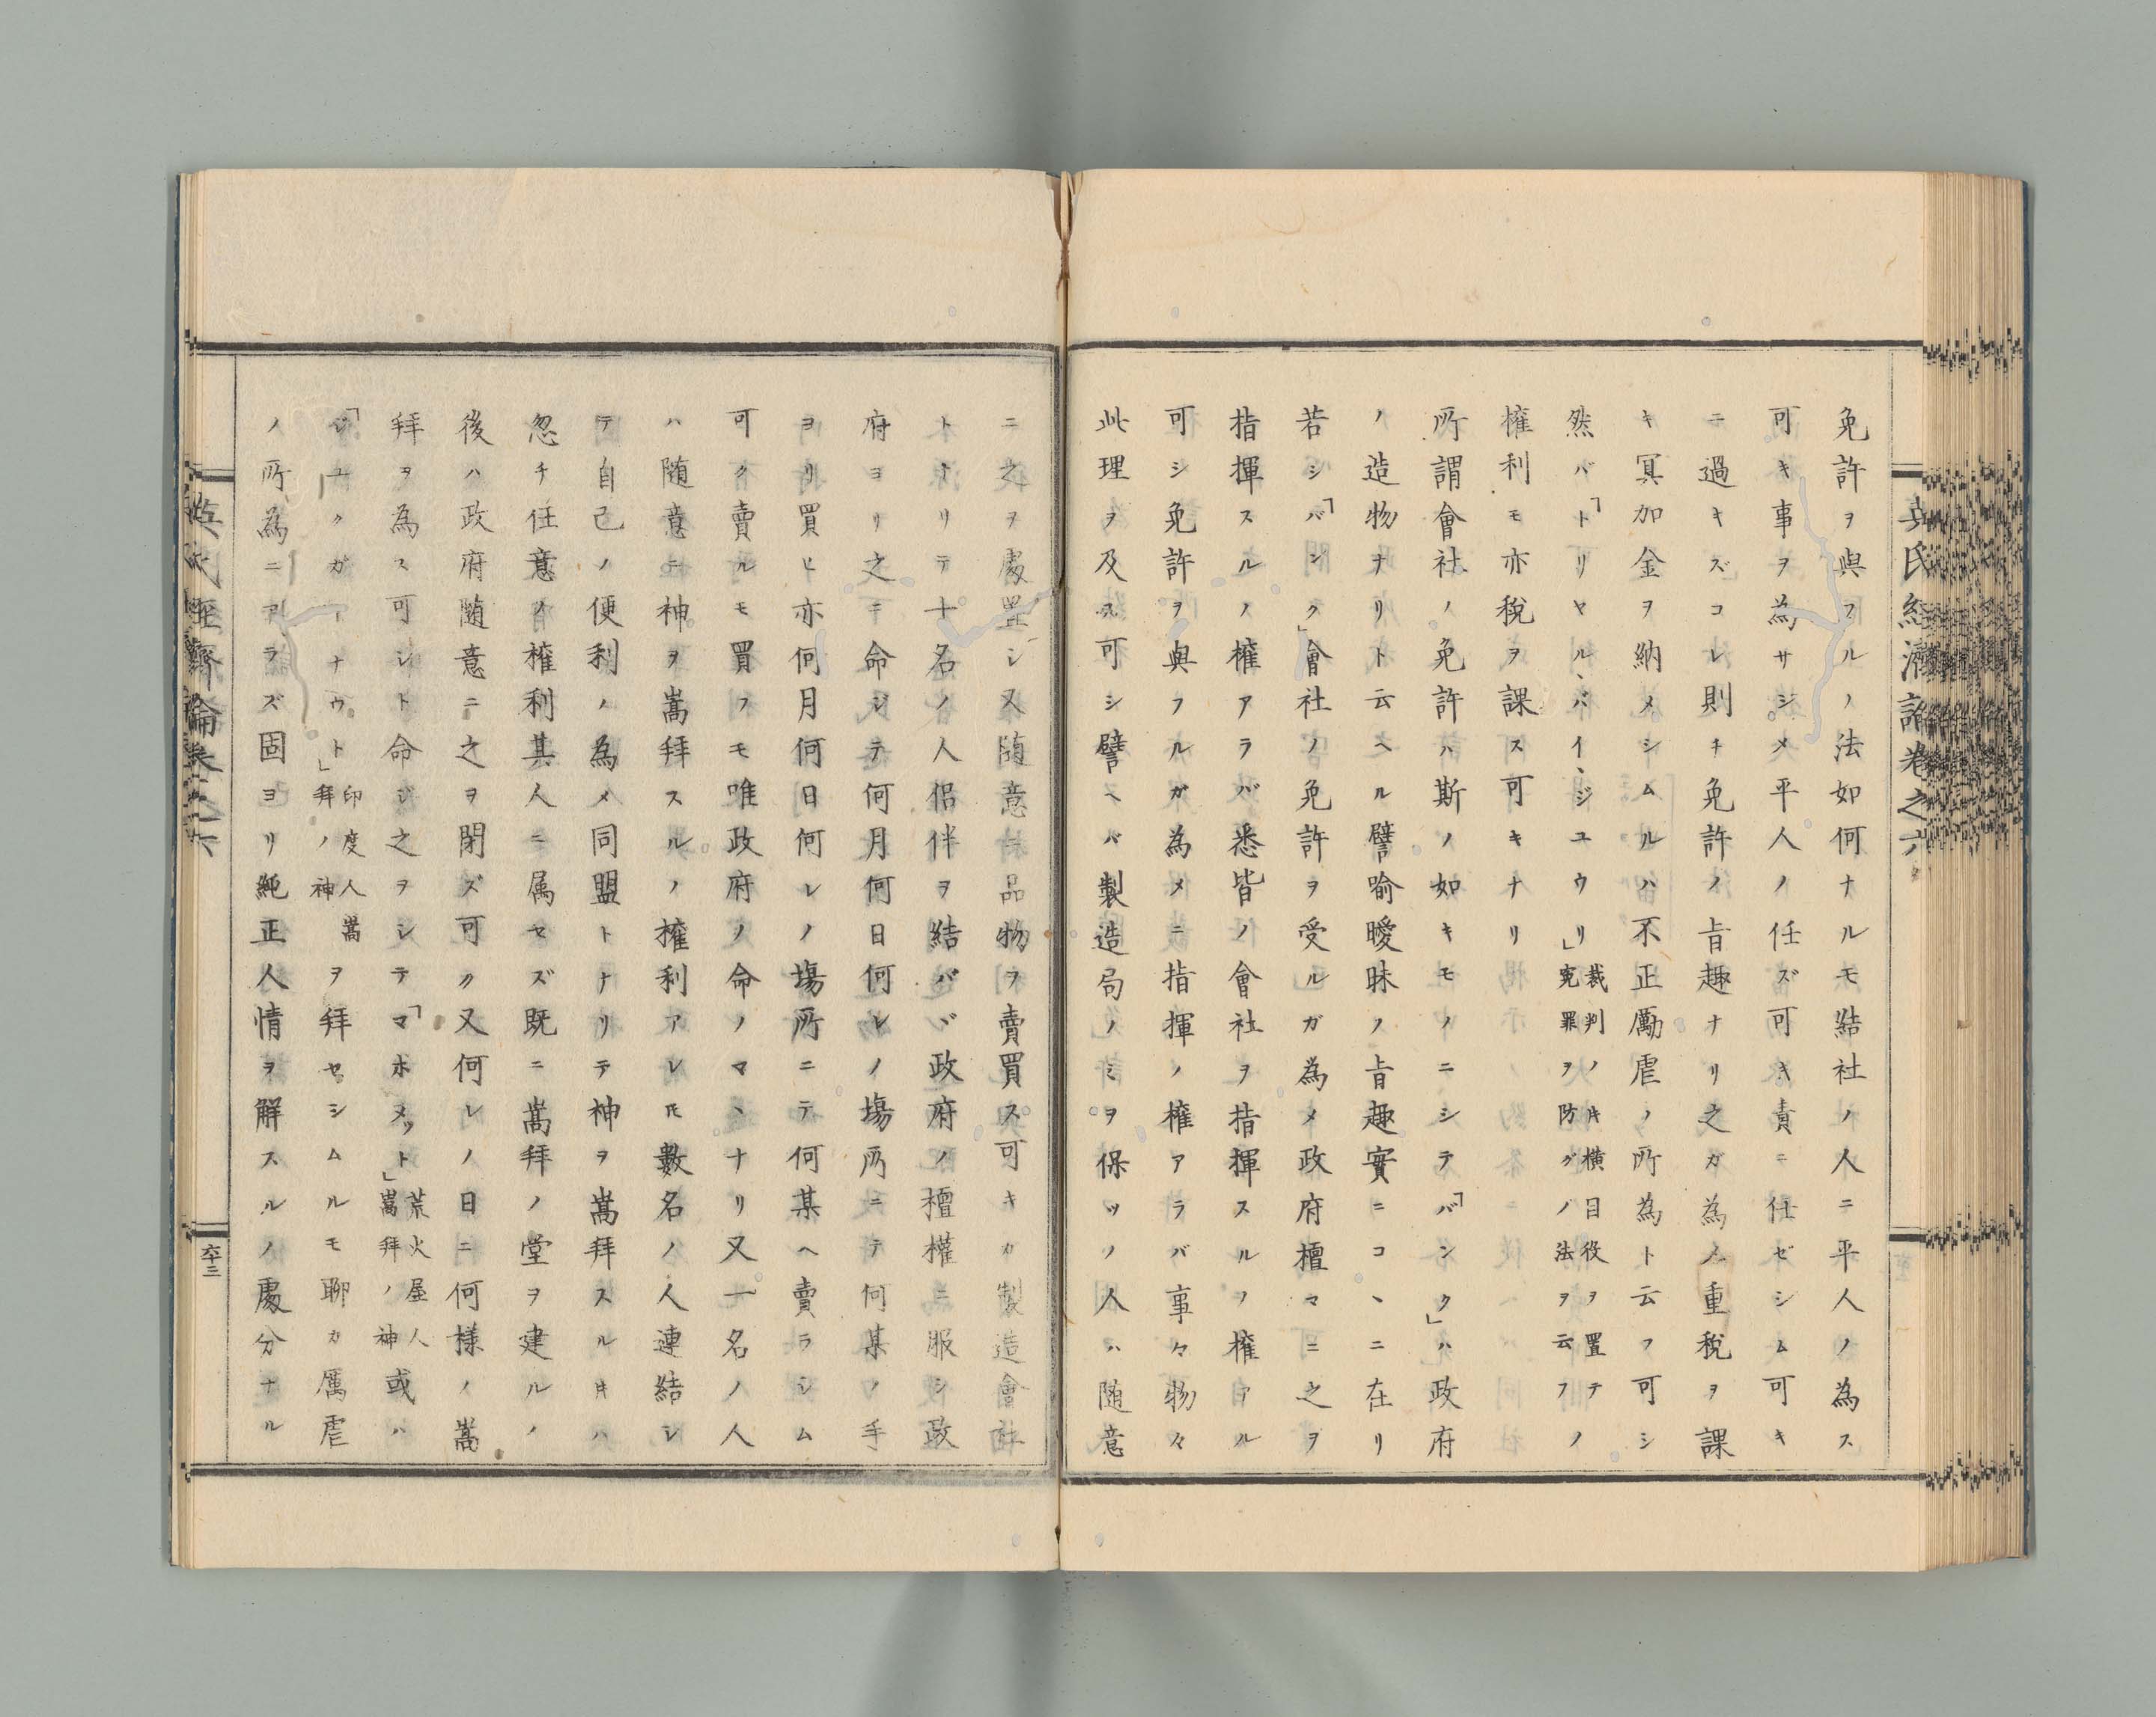 英氏經濟論卷之六
免許ヲ與フルノ法如何ナルモ結社ノ人ニ平人ノ為ス
可キ事ヲ為サシメ平人ノ任ズ可キ責ニ任ゼシム可キ
ニ過キズコレ則チ免許ノ旨趣ナリ之ガ為メ重稅ヲ課
キ冥加金ヲ納メシムルハ不正厲虐ノ所為ト云フ可シ
然バ「トリヤル、バイ、ジユウリ」裁判ノ時橫目役ヲ置テ冤罪ヲ防グノ法ヲ云フノ
權利モ亦稅ヲ課ス可キナリ
所謂會社ノ免許ハ斯ノ如キモノニシテ「バンク」ハ政府
ノ造物ナリト云ヘル譬喻曖昧ノ旨趣實ニコヽニ在リ
若シ「バンク」會社ノ免許ヲ受ルガ為メ政府檀マニ之ヲ
指揮スルノ權アラバ悉皆ノ會社ヲ指揮スルノ權アル
可シ免許ヲ與フルガ為メニ指揮ノ權アラバ事々物々
此理ヲ及ス可シ譬ヘバ製造局ノミヲ保ツノ人ハ隨意
ニ之ヲ處置シ又隨意ニ品物ヲ賣買ス可キガ製造會社
トナリテ十名ノ人侶伴ヲ結バヾ政府ノ檀權ニ服シ政
府ヨリ之ニ命ジテ何月何日何レノ塲所ニテ何某ノ手
ヨリ買ヒ亦何月何日何レノ塲所ニテ何某ヘ賣ラシム
可ク賣ルモ買フモ唯政府ノ命ノマヽナリ又一名ノ人
ハ隨意ニ神ヲ嵩拜スルノ權利アレ𪜈數名ノ人連結シ
テ自己ノ便利ノ為メ同盟トナリテ神ヲ嵩拜スル時ハ
忽チ任意ノ權利其人ニ属セズ既ニ嵩拜ノ堂ヲ建ルノ
後ハ政府隨意ニ之ヲ閉ズ可ク又何レノ日ニ何樣ノ嵩
拜ヲ為ス可シト命ジ之ヲシテ「マホメット」荒火屋人嵩拜ノ神或ハ
「ジユクガーナウト」印度人嵩拜ノ神ヲ拜セシムルモ聊カ厲虐
ノ所為ニアラズ固ヨリ純正人情ヲ解スルノ處分ナル
英氏經濟論卷之六